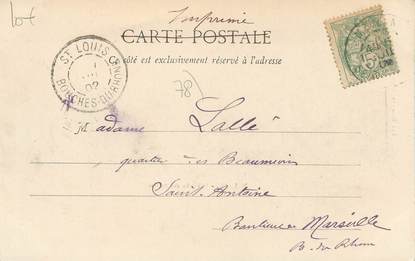 lot
Imprimé
CARTE POSTALE
côté est exclusivement réservé à l'adresse
ST LOUIS
02
BOUCHES-DU-RHONE
78)
Madame Lallé
quartier des
Saint-Antoine
Banlieue Marseille
B. du Rhône